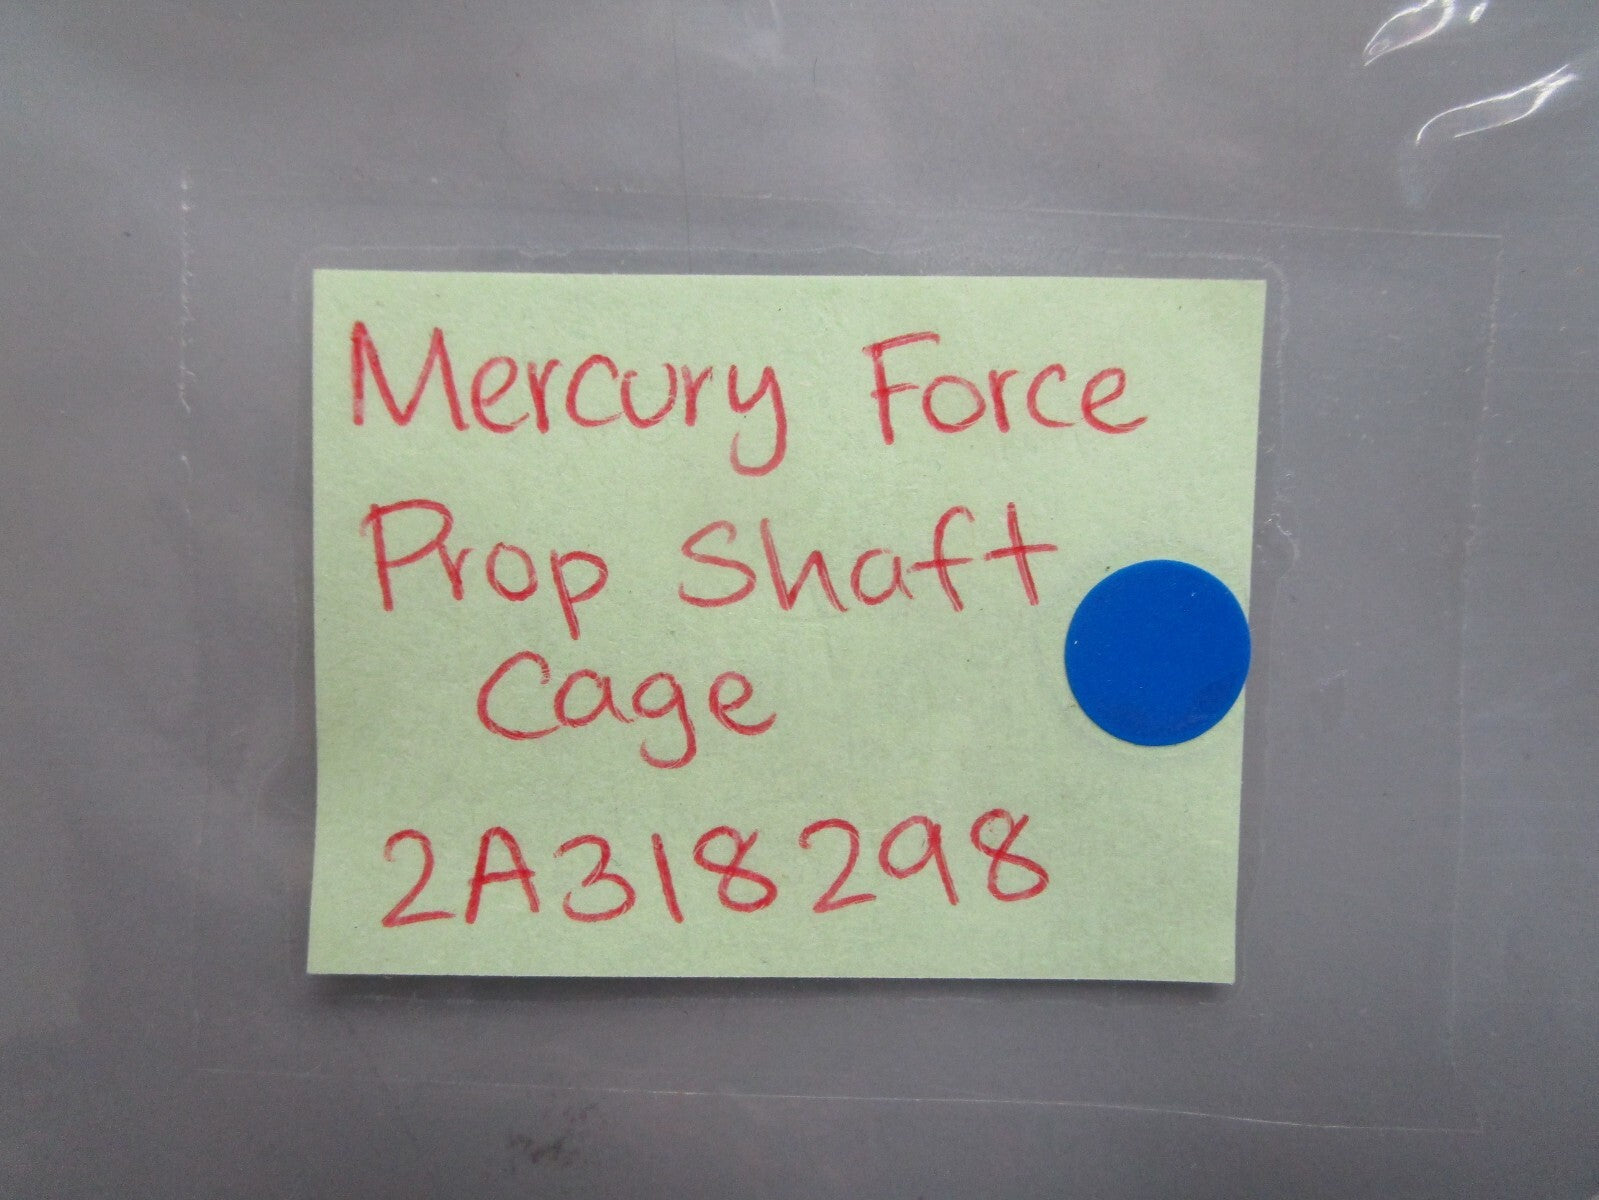 Mercury Force
Prop Shaft
Cage
2A318298